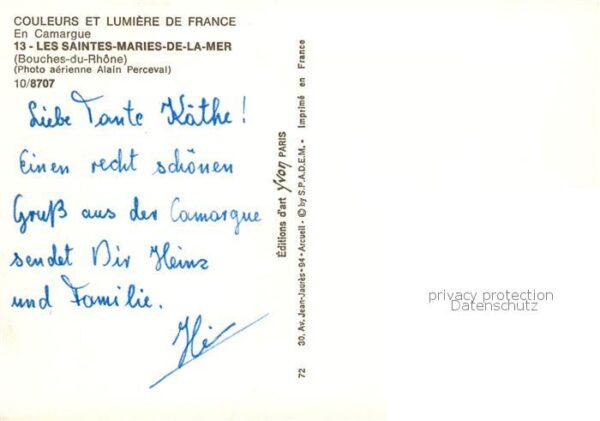 COULEURS ET LUMIÈRE DE FRANCE
En Camargue
13 - LES SAINTES-MARIES-DE-LA-MER
(Bouches-du-Rhône)
(Photo aérienne Alain Perceval)
10/8707
Liebe Tante Käthe!
Einen recht schönen
Gruß aus der Camargue
sendet Dir Heinz
und Familie.
Éditions d'art Yvon PARIS
30, Av. Jean-Jaurès - 94 - Arcueil - © by S.P.A.D.E.M. - Imprimé en France
72
privacy protection
Datenschutz